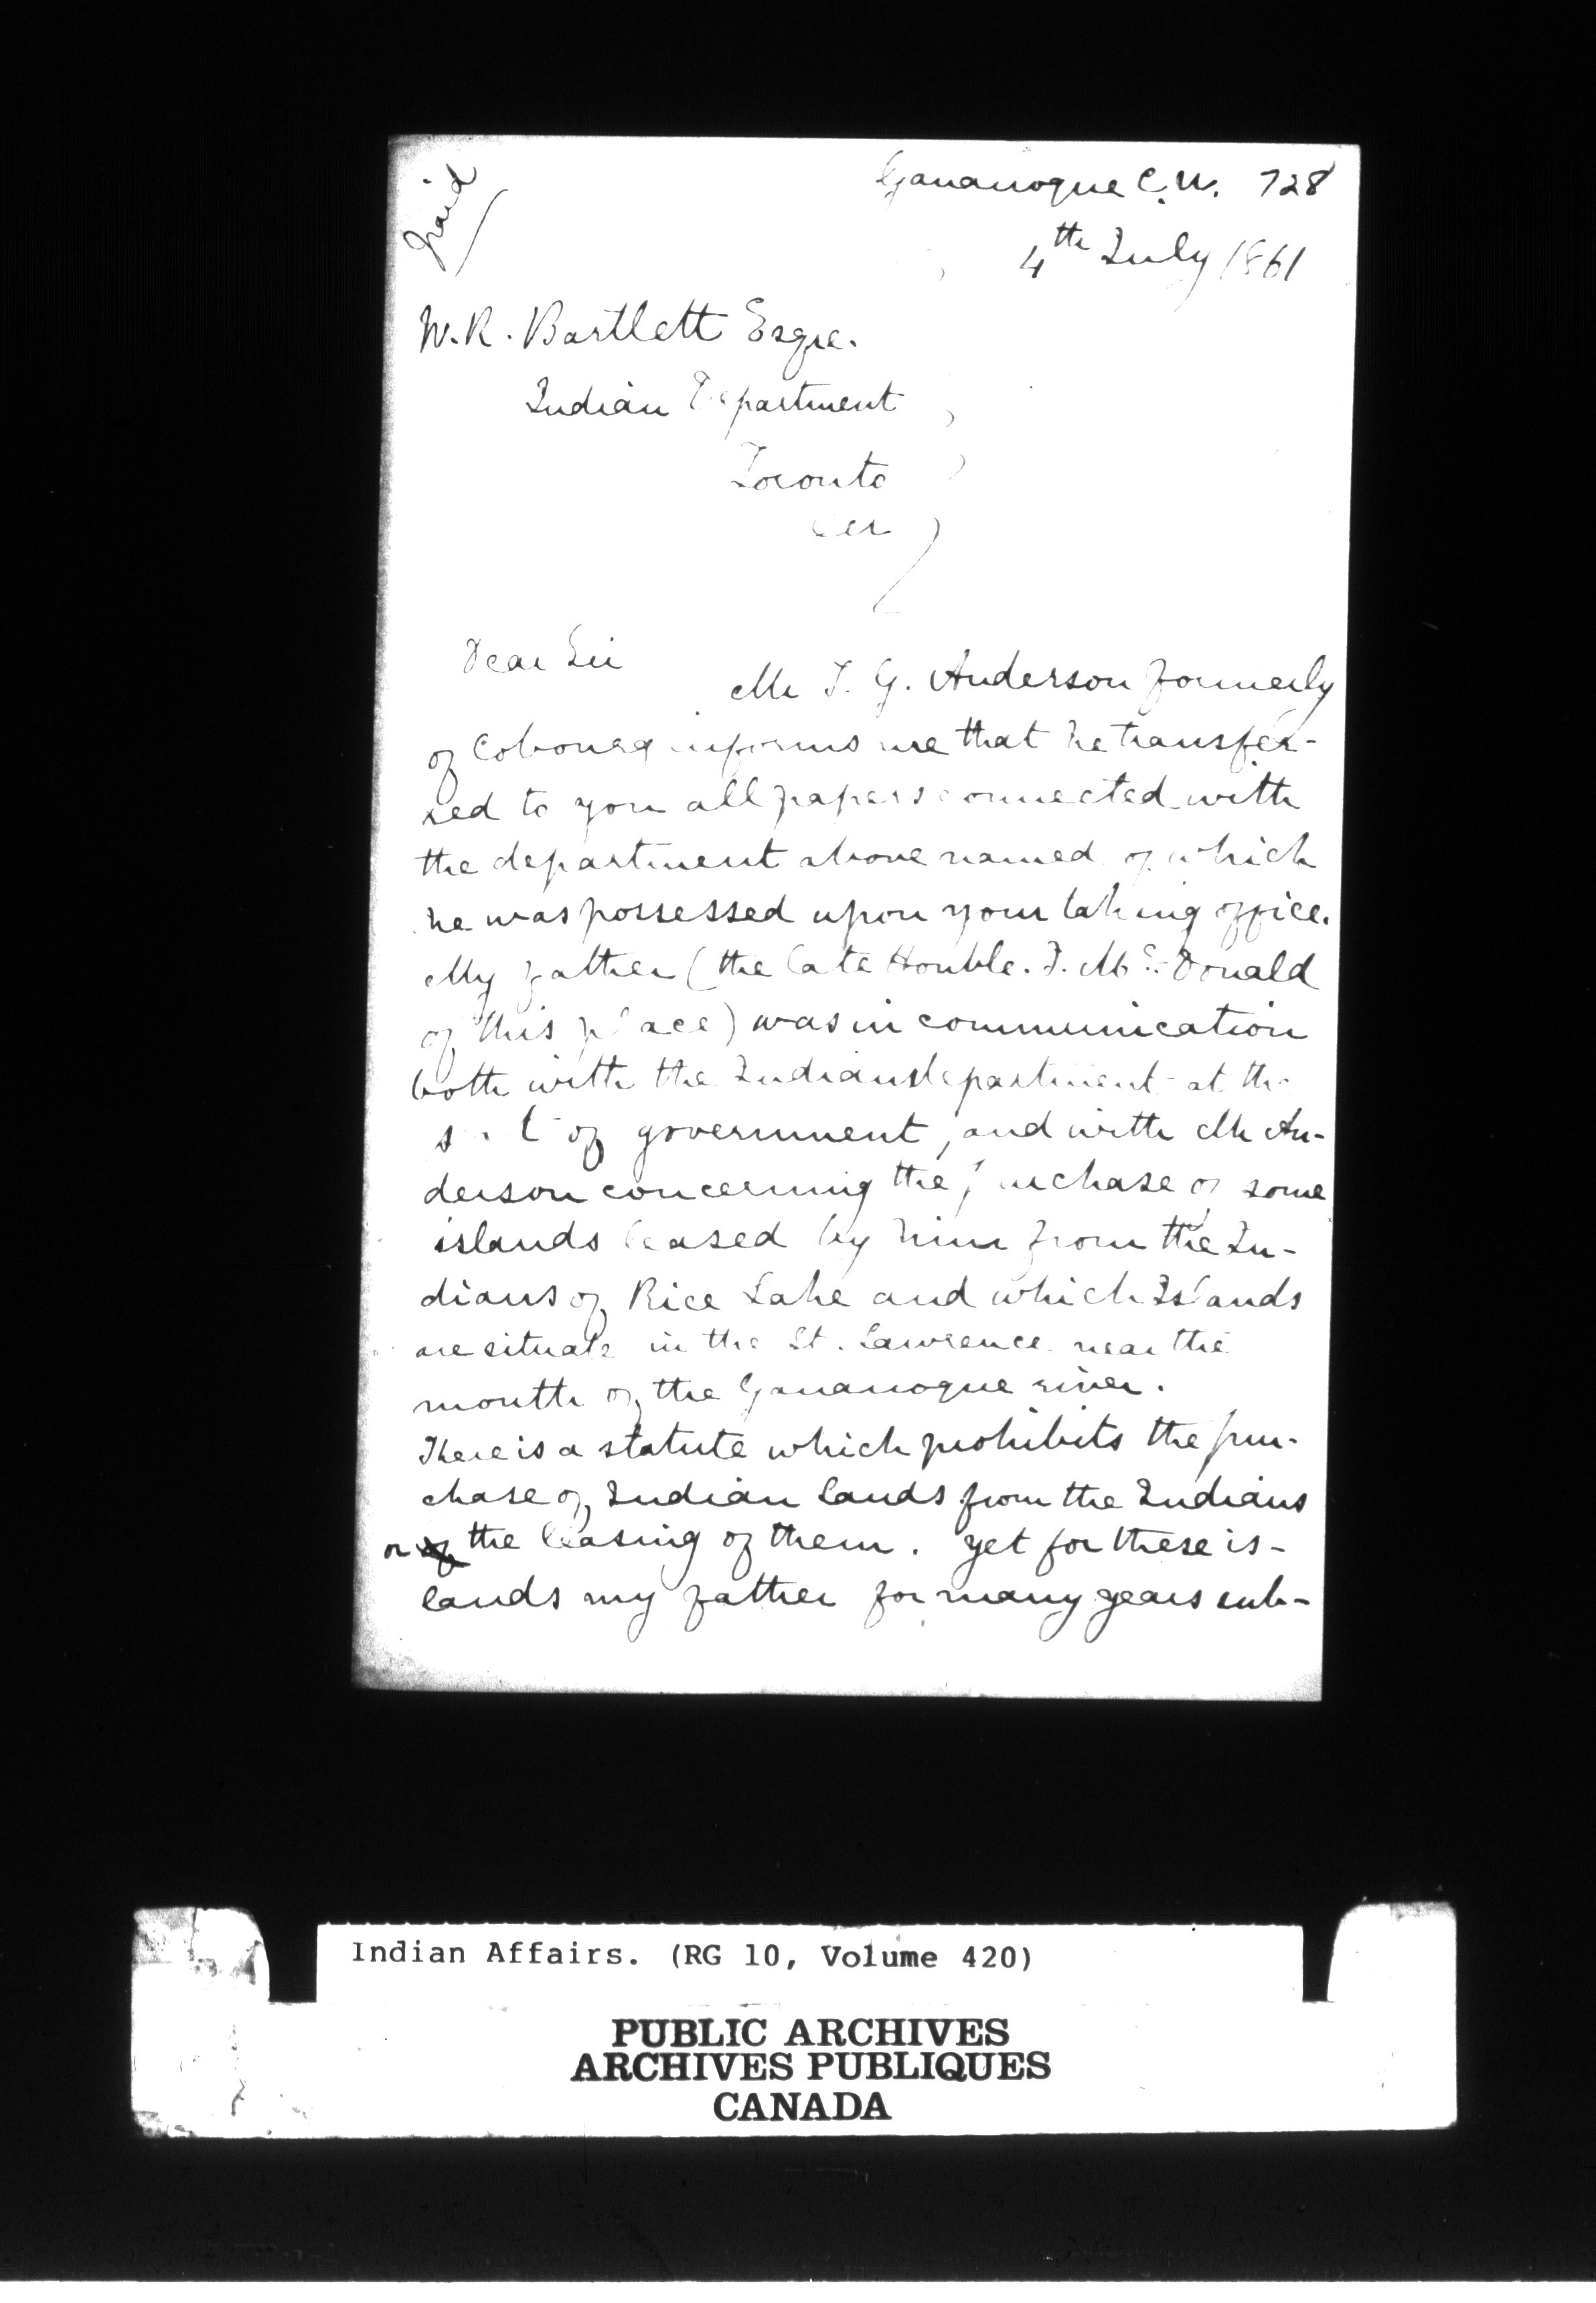 paid
Gananoque C.W. 728
4th July 1861
W. R. Bartlett Esqre.
Indian Department
Toronto
Dear Sir
Mr T. G. Anderson formerly
of Cobourg informs me that he transfer-
red to you all papers connected with
the department above named of which
he was possessed upon your taking office.
My father (the late Honble. J. McDonald
of this place) was in communication
both with the Indian department at the
seat of government, and with Mr An-
derson concerning the purchase of some
islands leased by him from the In-
dians of Rice Lake and which Islands
are situate in the St. Lawrence near the
mouth of the Gananoque river.
There is a statute which prohibits the pur-
chase of Indian lands from the Indians
or the leasing of them. Yet for these is-
lands my father for many years sub-
Indian Affairs. (RG 10, Volume 420)
PUBLIC ARCHIVES
ARCHIVES PUBLIQUES
CANADA